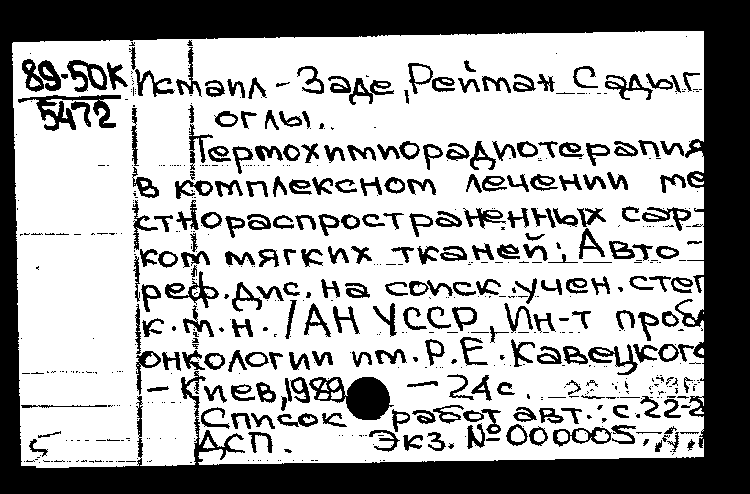 89-50К
5472
Исмаил-Заде, Рейман Садыг
оглы.
Термохимиорадиотерапия
в комплексном лечении ме
стнораспространенных сар-
ком мягких тканей: Авто-
реф. дис. на соиск. учен. степ
к.м.н. /АН УССР, Ин-т пробл
онкологии им. Р.Е. Кавецкого
- Киев, 1989 - 24с.
Список работ авт.: с.22-2
ДСП. Экз. № 000005.
5